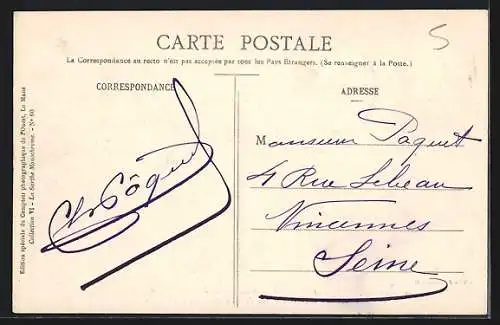 CARTE POSTALE
5
La Correspondance au recto n'est pas acceptée par tous les Pays Etrangers. (Se renseigner à la Poste.)
CORRESPONDANCE
ADRESSE
Monsieur Paquet
4 Rue Lebeau
Vincennes
Seine
Edition spéciale du Comptoir photographique de l'Ouest, Le Mans
Collection VI - La Sarthe Monochrome. - N° 60